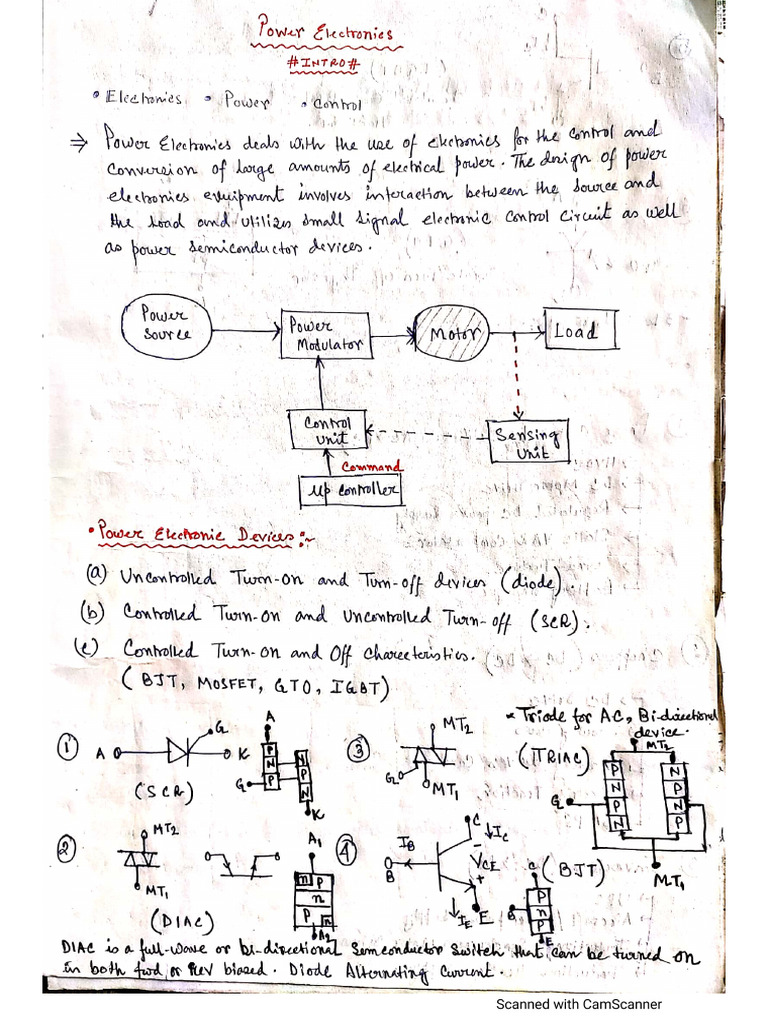 Power Electronics
#INTRO#
• Electronics • Power • Control
⇒ Power Electronics deals with the use of electronics for the control and
conversion of large amounts of electrical power. The design of power
electronics equipment involves interaction between the source and
the load and utilizes small signal electronic control circuit as well
as power semiconductor devices.
Power Source
Power Modulator
Motor
Load
Control Unit
Sensing Unit
Command
μp controller
• Power Electronic Devices :~
(a) Uncontrolled Turn-on and Turn-off devices (diode).
(b) Controlled Turn-on and Uncontrolled Turn-off (SCR).
(c) Controlled Turn-on and Off Charecteristics.
(BJT, MOSFET, GTO, IGBT)
* Triode for AC, Bi-directional
device.
1
A
G
K
(SCR)
A
P
N N
P P
N
G
K
3
MT2
G
MT1
(TRIAC)
MT2
P N
N P
P N
N P
G
MT1
2
MT2
MT1
(DIAC)
A1
n P
n
P n
A2
4
IB
B
C
IC
-
VCE
+
IE
E
(BJT)
C
P
n
P
B
E
DIAC is a full-wave or bi-directional Semconductor Switch that can be turned on
in both fwd or Rev biased. Diode Alternating Current.
Scanned with CamScanner